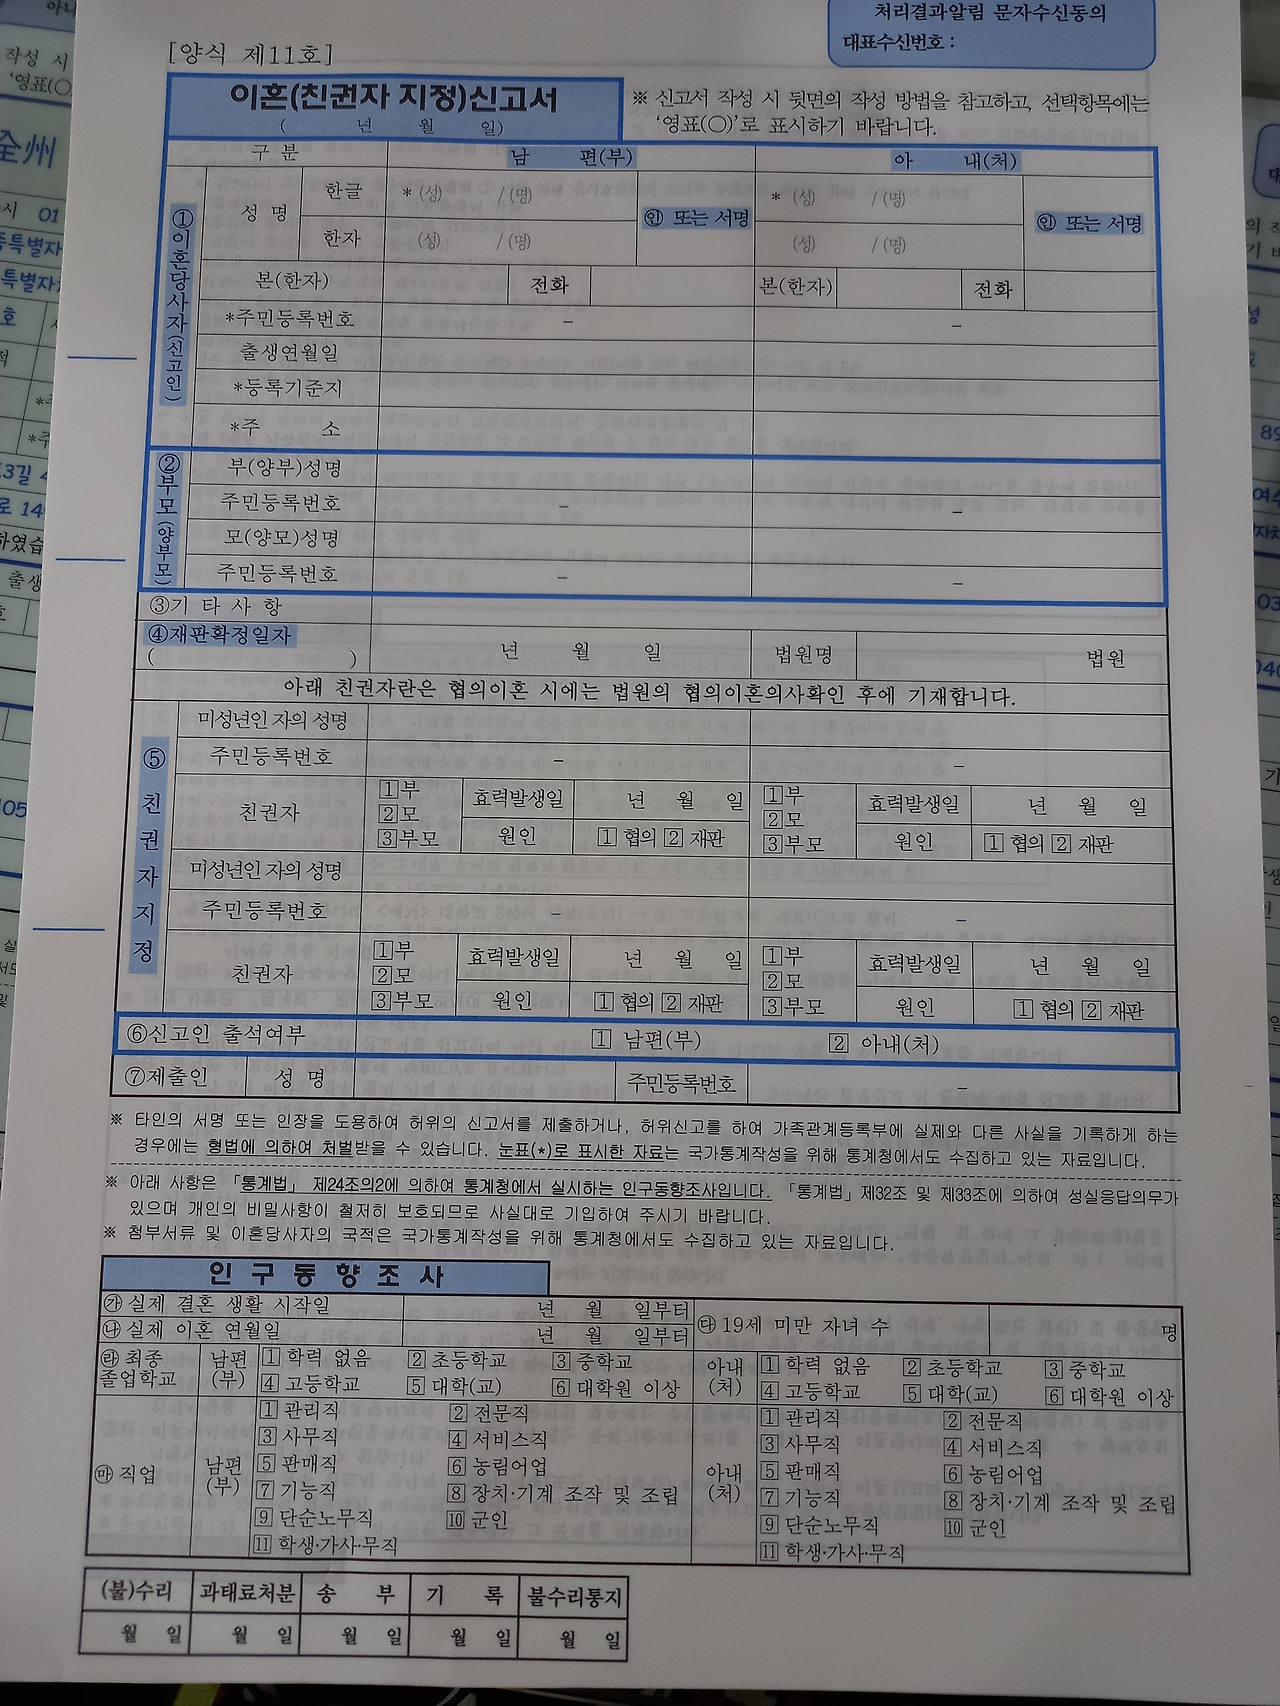 처리결과알림 문자수신동의
대표수신번호 :
[양식 제11호]
이혼(친권자 지정)신고서
( 년 월 일)
※ 신고서 작성 시 뒷면의 작성 방법을 참고하고, 선택항목에는
'영표(○)'로 표시하기 바랍니다.
구 분 남 편(부) 아 내(처)
①이혼당사자(신고인)
성 명 한글 * (성) / (명) ㉑ 또는 서명 * (성) / (명) ㉑ 또는 서명
한자 (성) / (명) (성) / (명)
본(한자) 전화 본(한자) 전화
*주민등록번호 – –
출생연월일
*등록기준지
*주 소
②부모(양부모)
부(양부)성명
주민등록번호 – –
모(양모)성명
주민등록번호 – –
③기 타 사 항
④재판확정일자
( ) 년 월 일 법원명 법원
아래 친권자란은 협의이혼 시에는 법원의 협의이혼의사확인 후에 기재합니다.
⑤친권자지정
미성년인 자의 성명
주민등록번호 – –
친권자 1부 2모 3부모 효력발생일 년 월 일 1부 2모 3부모 효력발생일 년 월 일
원인 1 협의 2 재판 원인 1 협의 2 재판
미성년인 자의 성명
주민등록번호 – –
친권자 1부 2모 3부모 효력발생일 년 월 일 1부 2모 3부모 효력발생일 년 월 일
원인 1 협의 2 재판 원인 1 협의 2 재판
⑥신고인 출석여부 1 남편(부) 2 아내(처)
⑦제출인 성 명 주민등록번호 –
※ 타인의 서명 또는 인장을 도용하여 허위의 신고서를 제출하거나, 허위신고를 하여 가족관계등록부에 실제와 다른 사실을 기록하게 하는
경우에는 형법에 의하여 처벌받을 수 있습니다. 눈표(*)로 표시한 자료는 국가통계작성을 위해 통계청에서도 수집하고 있는 자료입니다.
※ 아래 사항은 「통계법」 제24조의2에 의하여 통계청에서 실시하는 인구동향조사입니다. 「통계법」제32조 및 제33조에 의하여 성실응답의무가
있으며 개인의 비밀사항이 철저히 보호되므로 사실대로 기입하여 주시기 바랍니다.
※ 첨부서류 및 이혼당사자의 국적은 국가통계작성을 위해 통계청에서도 수집하고 있는 자료입니다.
인 구 동 향 조 사
㉮ 실제 결혼 생활 시작일 년 월 일부터 ㉰ 19세 미만 자녀 수 명
㉯ 실제 이혼 연월일 년 월 일부터
㉱ 최종 졸업학교 남편(부) 1 학력 없음 2 초등학교 3 중학교 아내(처) 1 학력 없음 2 초등학교 3 중학교
4 고등학교 5 대학(교) 6 대학원 이상 4 고등학교 5 대학(교) 6 대학원 이상
㉲ 직업 남편(부) 아내(처)
1 관리직 2 전문직 1 관리직 2 전문직
3 사무직 4 서비스직 3 사무직 4 서비스직
5 판매직 6 농림어업 5 판매직 6 농림어업
7 기능직 8 장치·기계 조작 및 조립 7 기능직 8 장치·기계 조작 및 조립
9 단순노무직 10 군인 9 단순노무직 10 군인
11 학생·가사·무직 11 학생·가사·무직
(불)수리 과태료처분 송 부 기 록 불수리통지
월 일 월 일 월 일 월 일 월 일